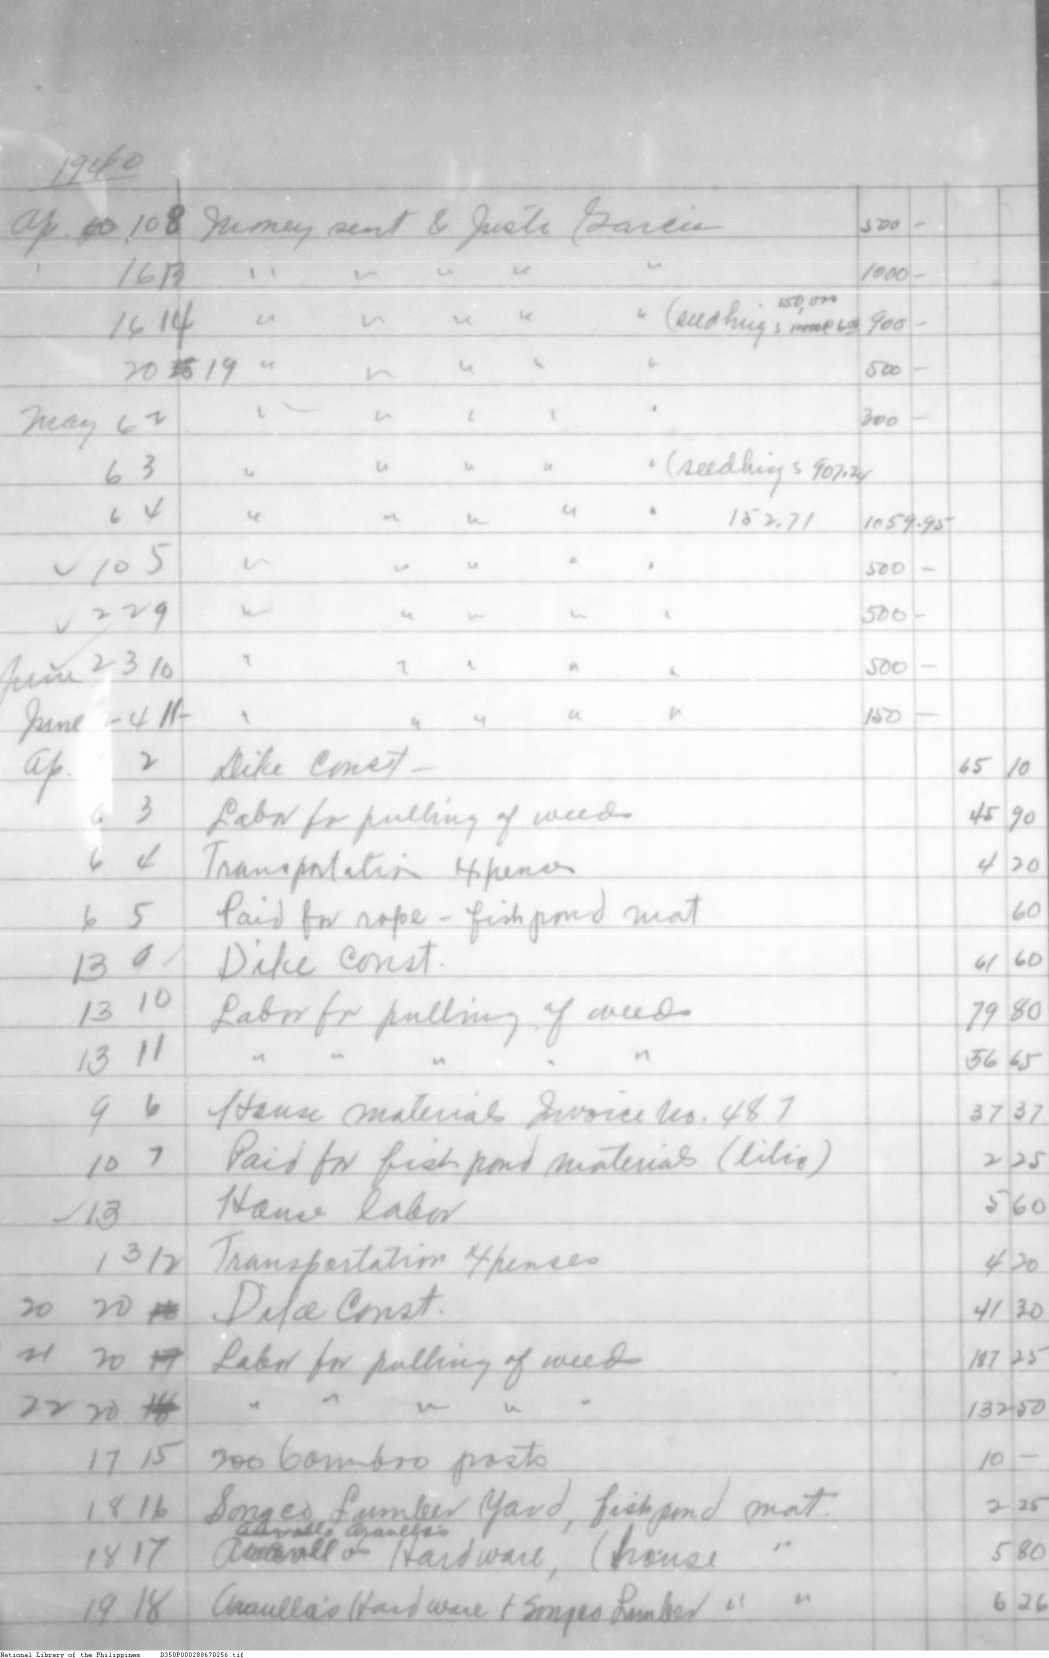 1940
Ap. 10 8 Money sent to Justo Garcia 500 -
16 13 " " " " " 1000 -
16 14 " " " " " (seedlings 150,000 900 -
20 19 " " " " " 500 -
May 6 2 " " " " " 300 -
6 3 " " " " " (seedlings 907.24
6 4 " " " " " 152.71 1059.95
✓ 10 5 " " " " " 500 -
✓ 22 9 " " " " " 500 -
June 23 10 " " " " " 500 -
June - 4 11 - " " " " " 150 -
Ap. 2 Dike Const - 65 10
6 3 Labor for pulling of weeds 45 90
6 4 Transportation Expenses 4 20
6 5 Paid for rope - fishpond mat 60
13 9 Dike Const. 61 60
13 10 Labor for pulling of weeds 79 80
13 11 " " " " " 56 65
9 6 House materials Invoice No. 487 37 37
10 7 Paid for fish pond materials (lilio) 2 25
✓ 13 House labor 5 60
13 12 Transportation Expenses 4 20
20 20 Dike Const. 41 30
21 20 17 Labor for pulling of weeds 187 25
22 20 18 " " " " " 132 50
17 15 200 bamboo posts 10 -
18 16 Songco Lumber Yard, fishpond mat. 2 25
18 17 Aranilla's Hardware, (house " 5 80
19 18 Aranilla's Hardware & Songco Lumber " " 6 26
National Library of the Philippines D350P000288670256.tif